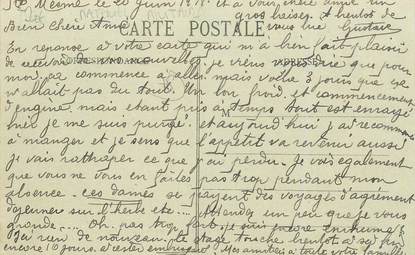 Ste Mesme le 20 Juin
et à vous chère amie un
gros baiser. A bientôt de
vous lire Gustave
Bien chère Amie
CARTE POSTALE
En réponse à votre carte qui m'a bien fait plaisir
de recevoir de vos nouvelles je viens vous dire que pour
CORRESPONDANCE
ADRESSE
moi ça commence à aller mais voilà 3 jours que ça
n'allait pas du tout. Un bon froid et commencement
d'angine, mais étant pris à temps tout est enrayé
M
hier je me suis purgé et aujourd'hui j'ai recommencé
à manger et je sens que l'appétit va revenir aussi
je vais rattraper ce que j'ai perdu. Je vois également
que vous ne vous en faites pas trop pendant mon
absence. ces dames se payent des voyages d'agrément
déjeuners sur l'herbe etc... Attendez un peu que je vous
gronde.... Oh. pas trop fort je suis encore enrhumé
J'ai rien de nouveau. Le stage touche bientôt à sa fin
encore jours Mes amitiés à toute votre famille